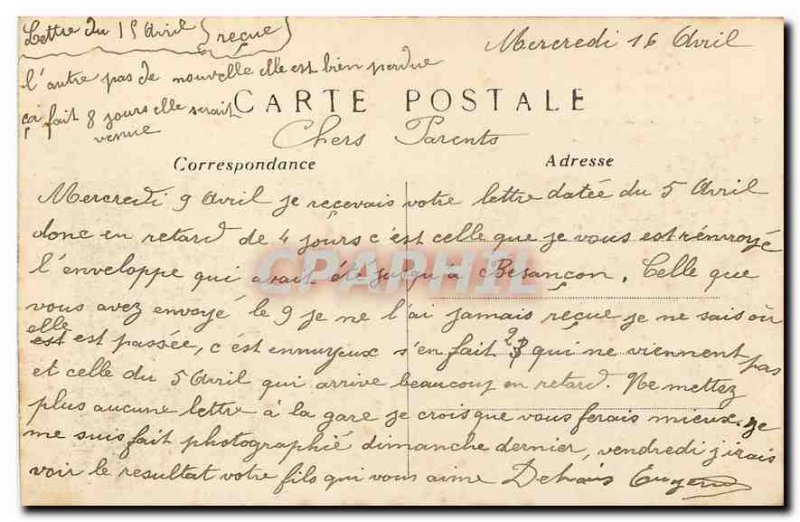 Lettre du 15 Avril (reçue)
l'autre pas de nouvelle elle est bien perdue
ça fait 8 jours elle serait
venue
Mercredi 16 Avril
CARTE POSTALE
Chers Parents
Correspondance
Adresse
Mercredi 9 Avril je recevais votre lettre datée du 5 Avril
donc en retard de 4 jours c'est celle que je vous est rénvoyé
l'enveloppe qui avait été jusqu'à Besançon. Celle que
vous avez envoyé le 9 je ne l'ai jamais reçue je ne sais où
elle est passée, c'est ennuyeux s'en fait 2 qui ne viennent pas
et celle du 5 Avril qui arrive beaucoup en retard. Ne mettez
plus aucune lettre à la gare je crois que vous ferais mieux. Je
me suis fait photographié dimanche dernier, vendredi j'irais
voir le resultat votre fils qui vous aime Eugene
CPAPHIL